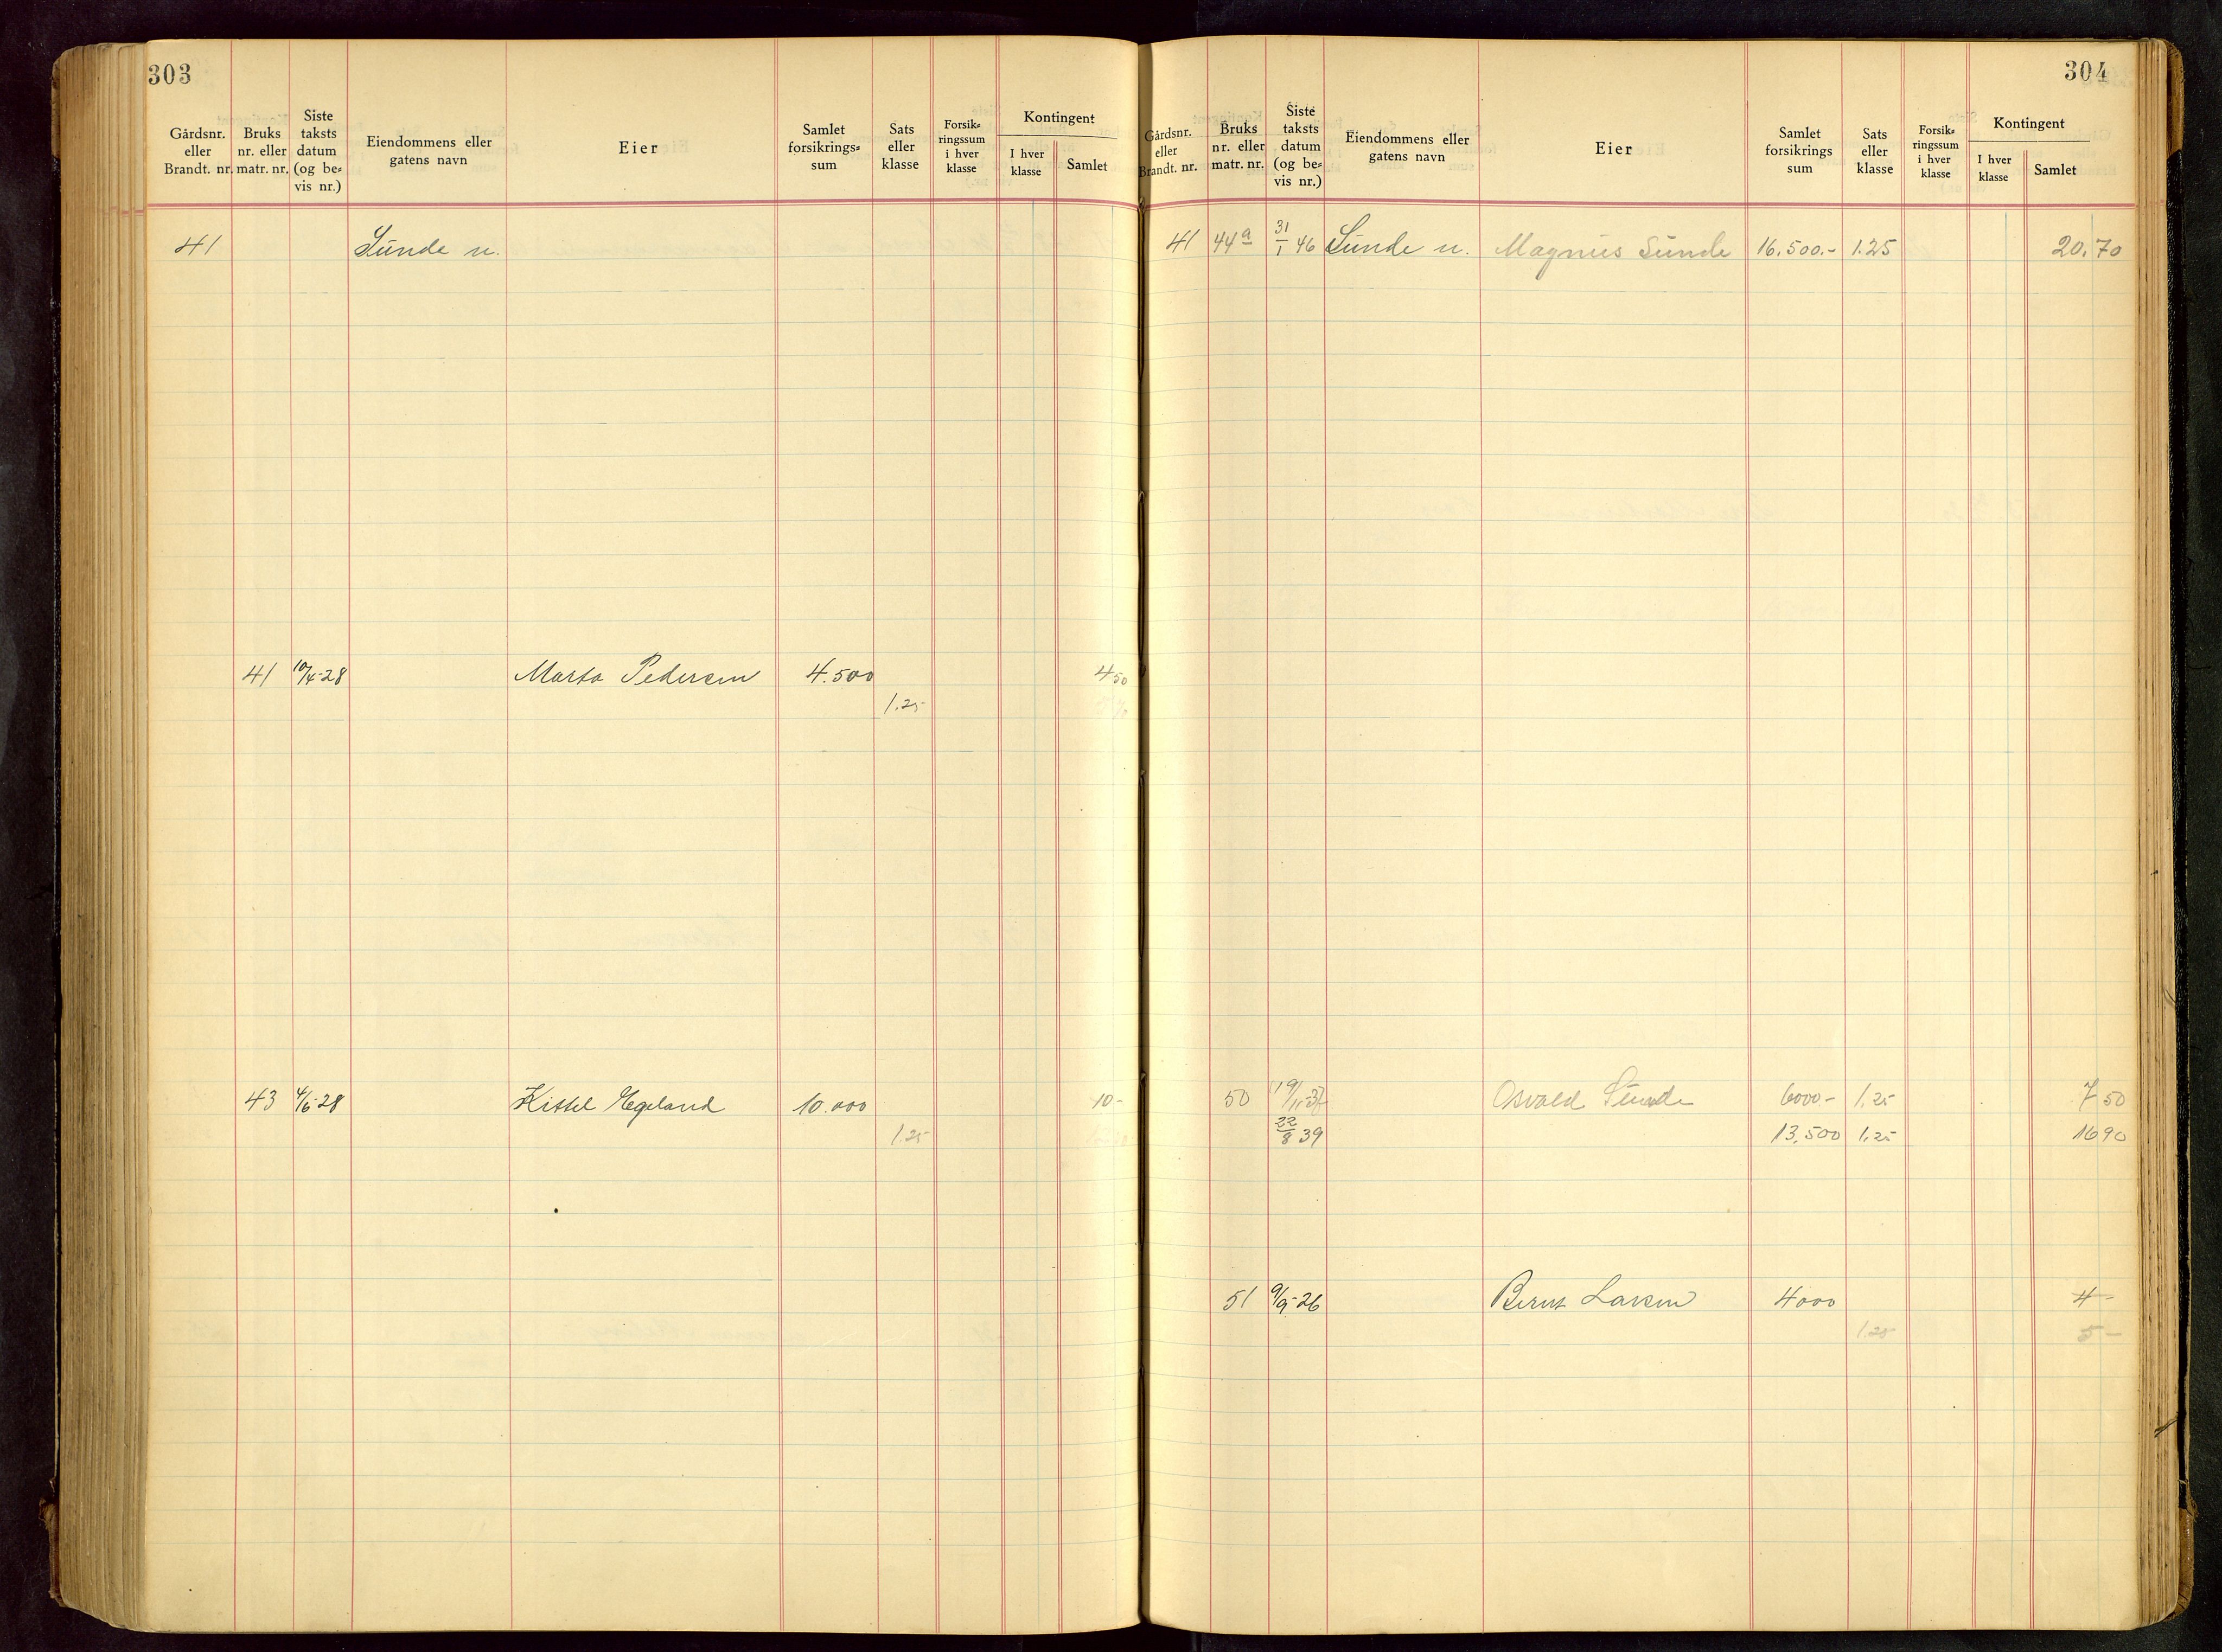 303
Gårdsnr. eller Brandt. nr. Bruks nr. eller matr. nr. Siste taksts datum (og be= vis nr.) Eiendommens eller gatens navn Eier Samlet forsikrings= sum Sats eller klasse Forsik= ringssum i hver klasse Kontingent I hver klasse Samlet
41 Sunde n.
41 10/4-28 Marta Pedersen 4.500 4 50
1.25
43 4/5-28 Kittel Egeland 10.000 10-
1.25
304
Gårdsnr. eller Brandt. nr. Bruks nr. eller matr. nr. Siste taksts datum (og be= vis nr.) Eiendommens eller gatens navn Eier Samlet forsikrings sum Sats eller klasse Forsik= ringssum i hver klasse Kontingent I hver klasse Samlet
41 44a 31/1 46 Sunde n. Magnus Sunde 16.500.- 1.25 20.70
50 19/11-37 Osvald Sunde 6000- 1.25 7 50
22/8 39 13.500 1.25 16 90
51 9/9-26 Bernt Larsen 4000 4-
1.25 5-